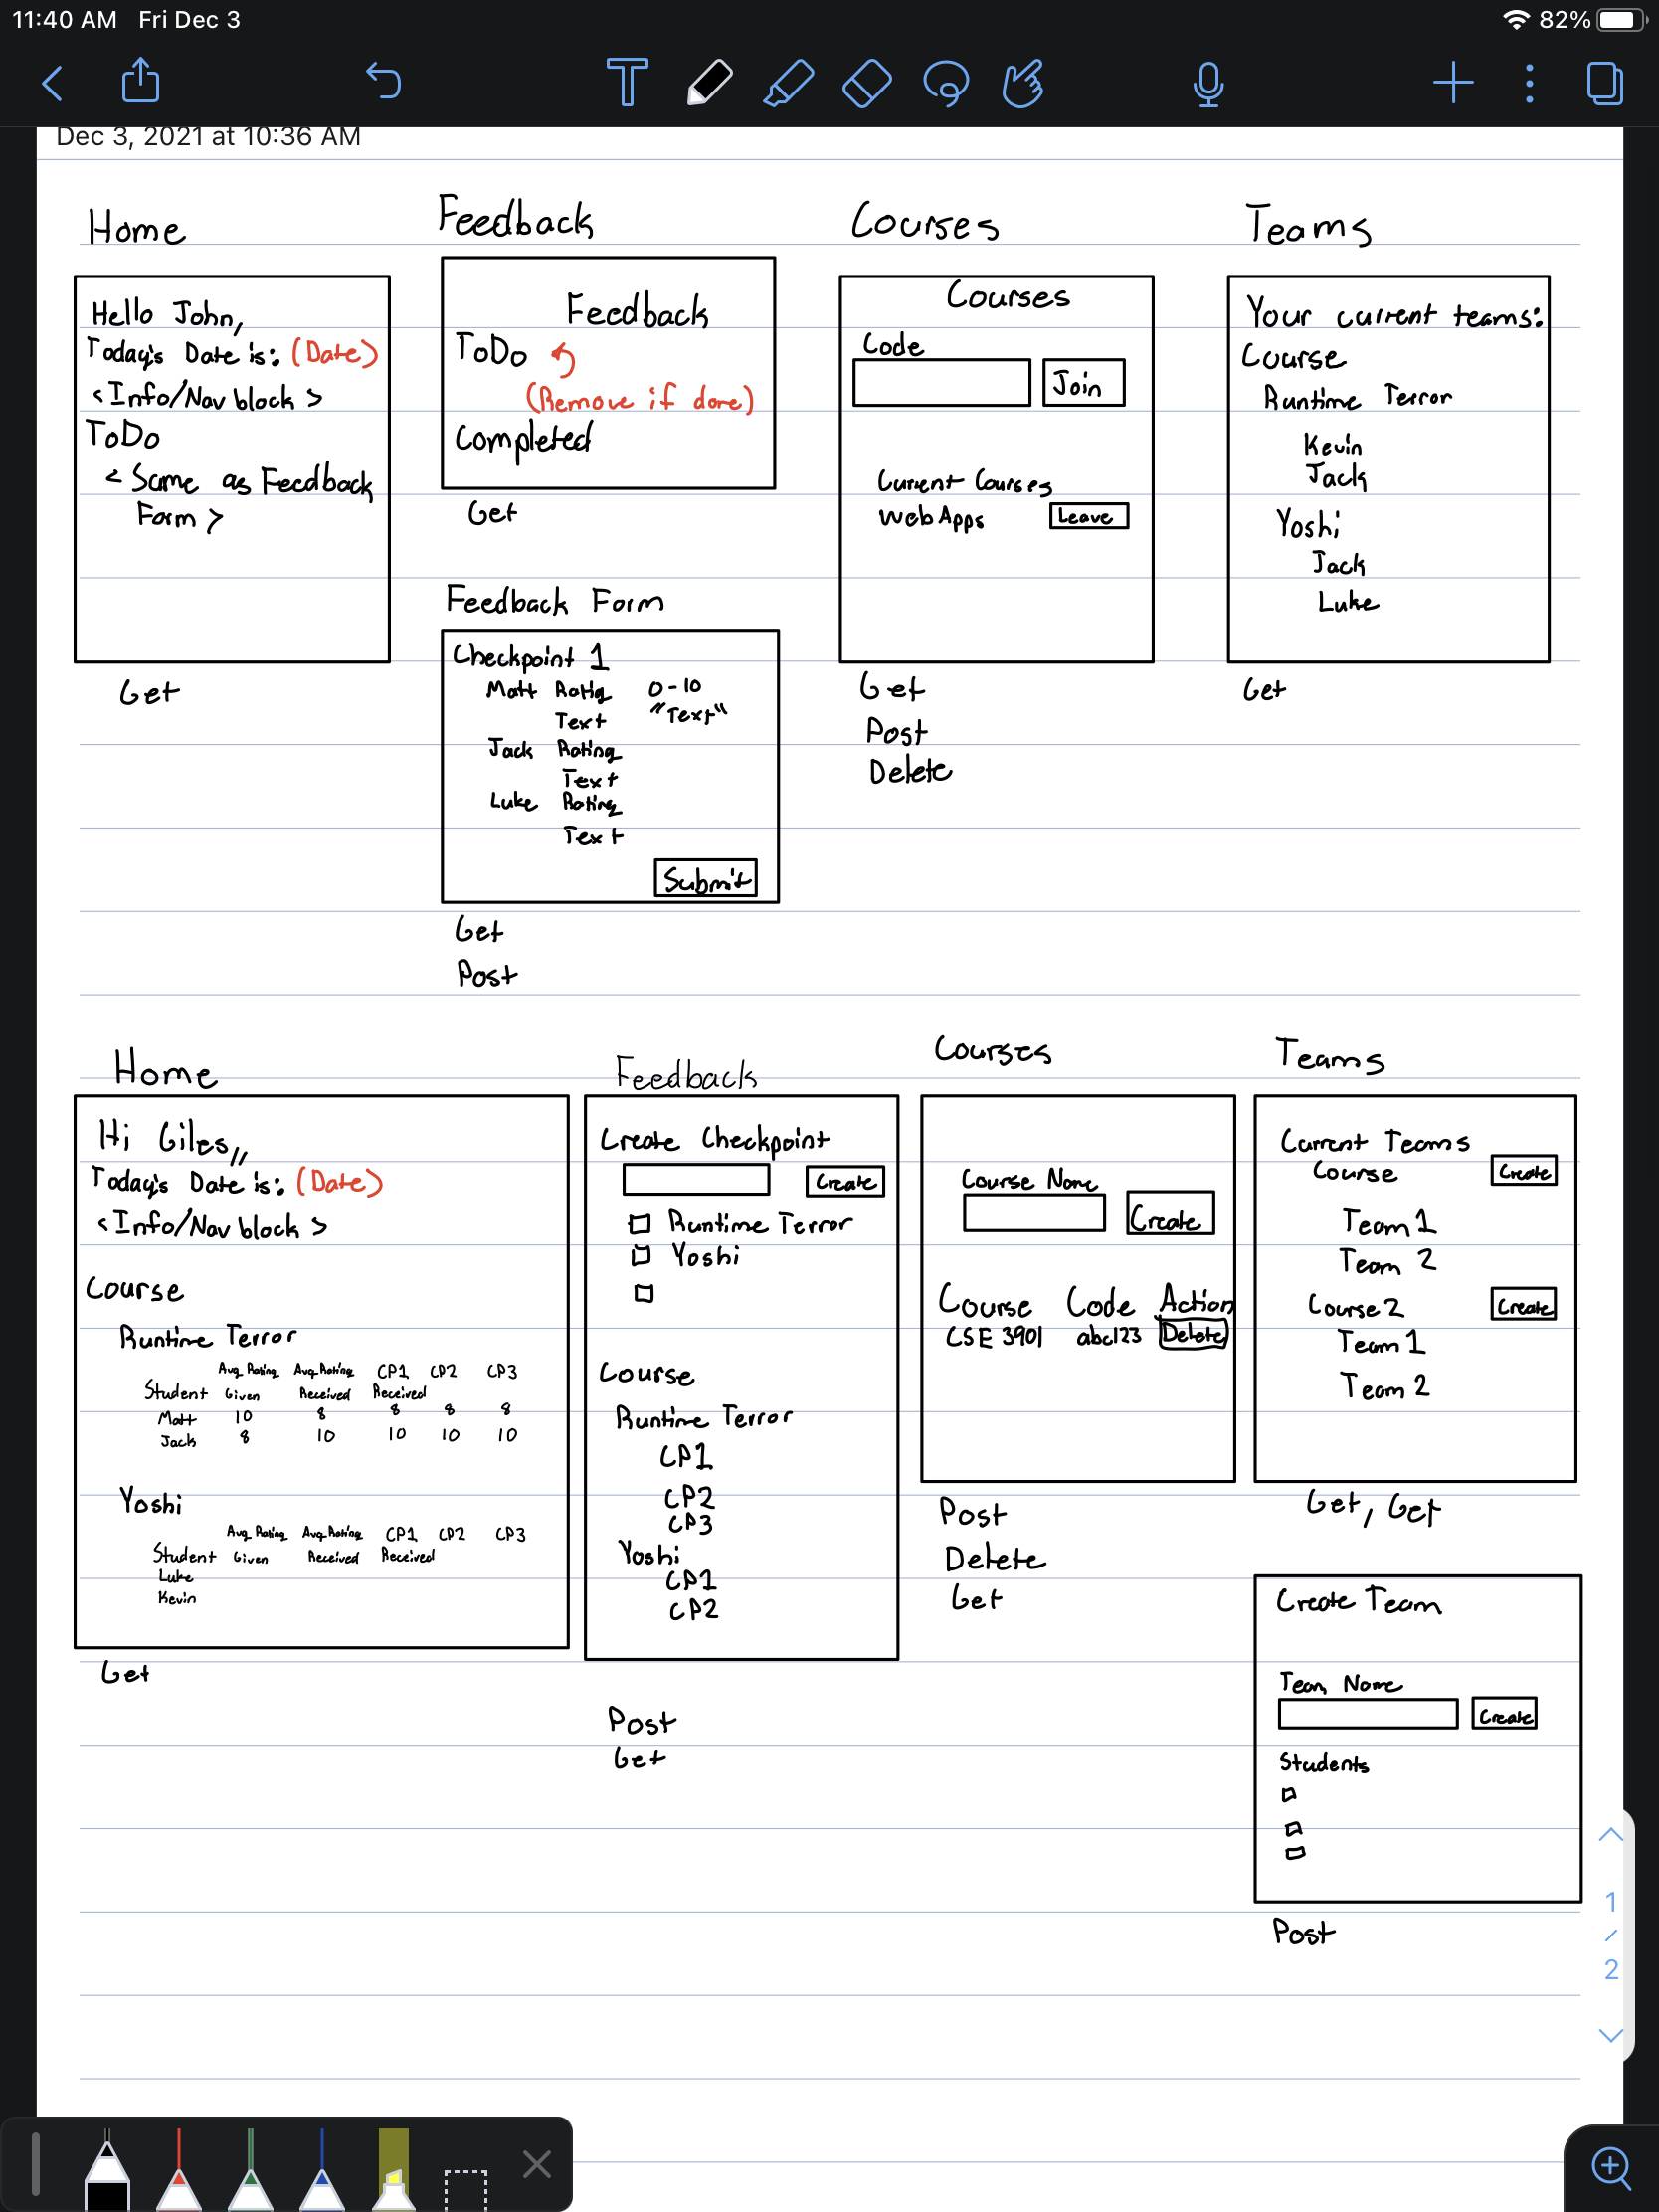 11:40 AM Fri Dec 3
82%
Dec 3, 2021 at 10:36 AM
Home
Hello John,
Today's Date is: (Date)
<Info/Nav block>
ToDo
<Same as Feedback
Form>
Get
Feedback
Feedback
ToDo
(Remove if done)
Completed
Get
Feedback Form
Checkpoint 1
Matt Ratig 0-10
Text "Text"
Jack Rating
Text
Luke Rating
Text
Submit
Get
Post
Courses
Courses
Code
Join
Current Courses
Web Apps Leave
Get
Post
Delete
Teams
Your current teams:
Course
Runtime Terror
Kevin
Jack
Yoshi
Jack
Luke
Get
Home
Hi Giles,,
Today's Date is: (Date)
<Info/Nav block>
Course
Runtime Terror
Avg Rating Avg Rating CP1 CP2 CP3
Student Given Received Received
Matt 10 8 8 8 8
Jack 8 10 10 10 10
Yoshi
Avg Rating Avg Rating CP1 CP2 CP3
Student Given Received Received
Luke
Kevin
Get
Feedback
Create Checkpoint
Create
Runtime Terror
Yoshi
Course
Runtime Terror
CP1
CP2
CP3
Yoshi
CP1
CP2
Post
Get
Courses
Course Name
Create
Course Code Action
CSE 3901 abc123 Delete
Post
Delete
Get
Teams
Current Teams
Course Create
Team 1
Team 2
Course 2 Create
Team 1
Team 2
Get, Get
Create Team
Team Name
Create
Students
Post
1
/
2